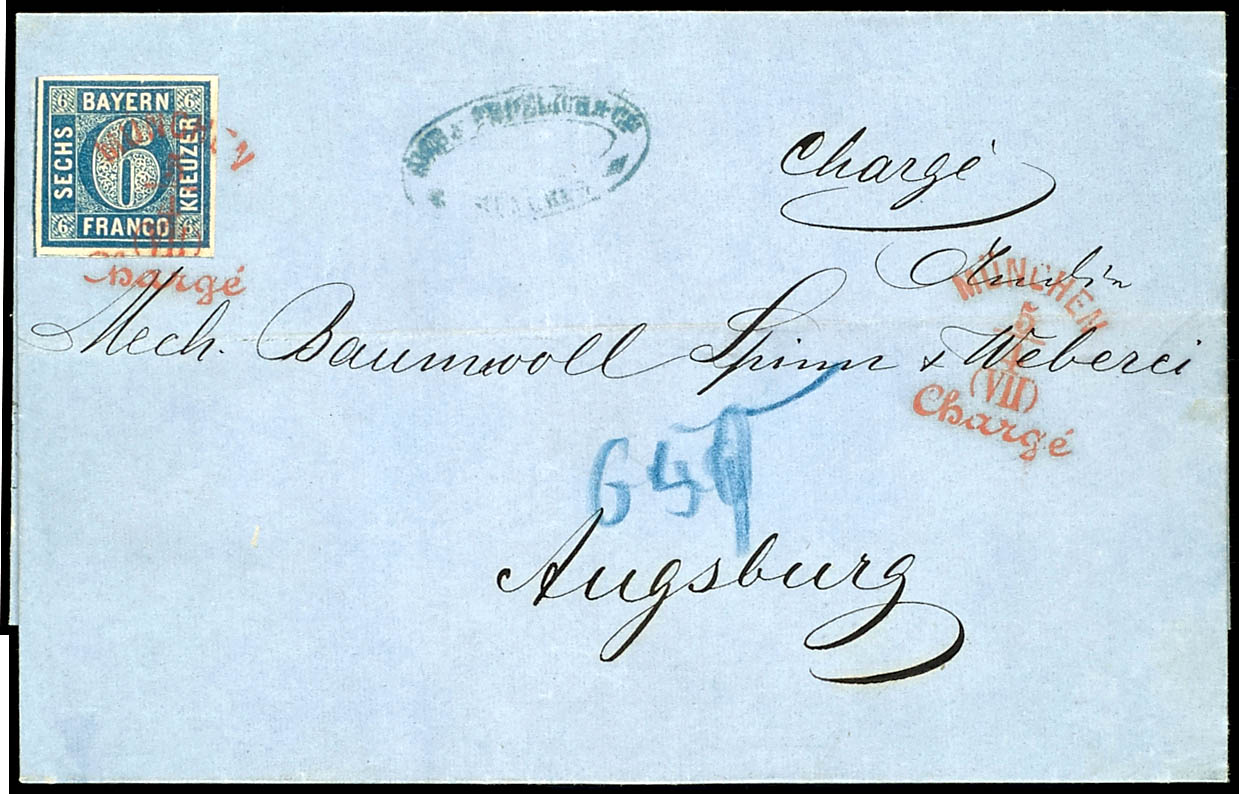 6 BAYERN 6
SECHS 6 KREUZER
6 FRANCO 6
MÜNCHEN
(VII)
Chargé
Chargé
MÜNCHEN
5
4
(VII)
Chargé
Mech. Baumwoll Spinn & Weberei
645
Augsburg